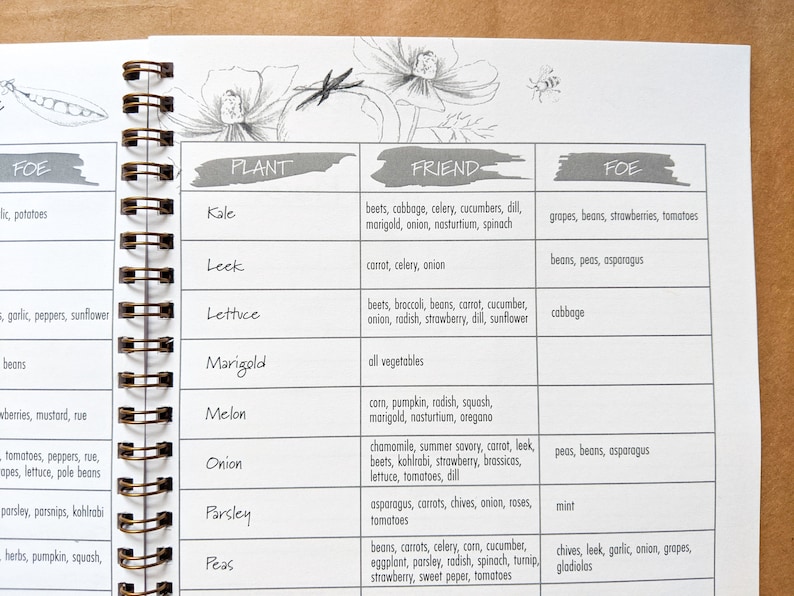 FOE
lic, potatoes
s, garlic, peppers, sunflower
beans
wberries, mustard, rue
, tomatoes, peppers, rue,
apes, lettuce, pole beans
parsley, parsnips, kohlrabi
, herbs, pumpkin, squash,
PLANT FRIEND FOE
Kale
beets, cabbage, celery, cucumbers, dill,
marigold, onion, nasturtium, spinach
grapes, beans, strawberries, tomatoes
Leek
carrot, celery, onion
beans, peas, asparagus
Lettuce
beets, broccoli, beans, carrot, cucumber,
onion, radish, strawberry, dill, sunflower
cabbage
Marigold
all vegetables
Melon
corn, pumpkin, radish, squash,
marigold, nasturtium, oregano
Onion
chamomile, summer savory, carrot, leek,
beets, kohlrabi, strawberry, brassicas,
lettuce, tomatoes, dill
peas, beans, asparagus
Parsley
asparagus, carrots, chives, onion, roses,
tomatoes
mint
Peas
beans, carrots, celery, corn, cucumber,
eggplant, parsley, radish, spinach, turnip,
strawberry, sweet peper, tomatoes
chives, leek, garlic, onion, grapes,
gladiolas